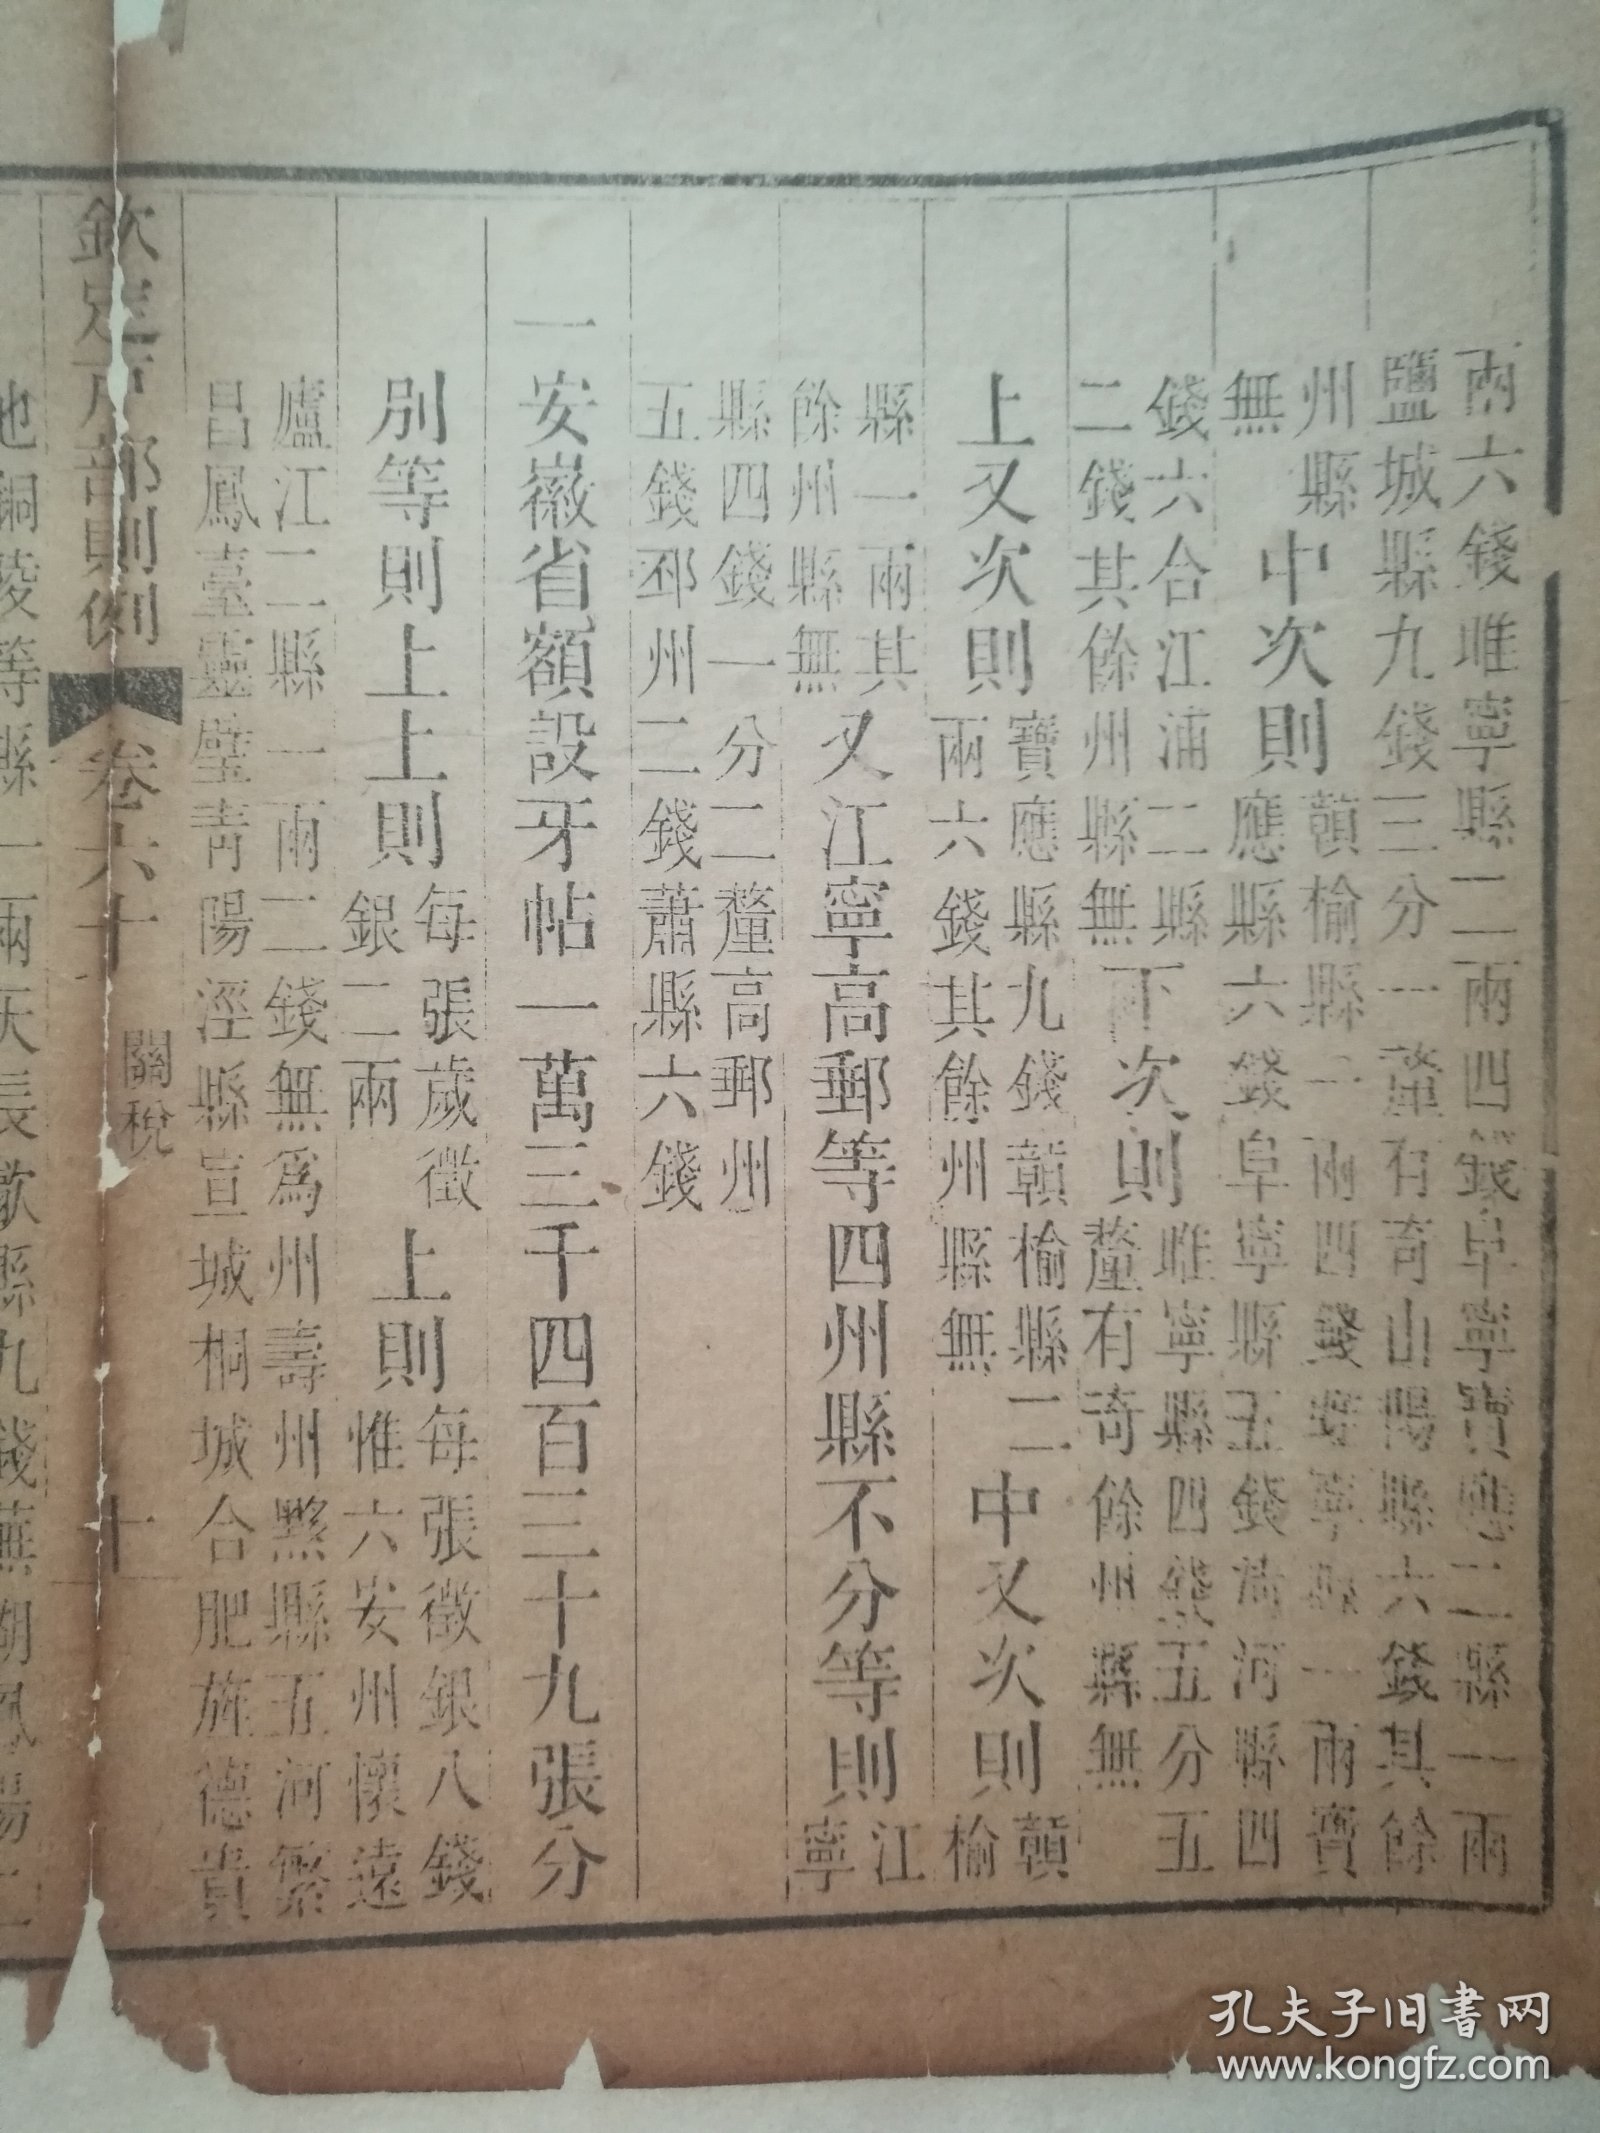 兩六錢睢寧縣二兩四錢阜寧寶應二縣一兩
鹽城縣九錢三分一釐有奇山陽縣六錢其餘
州縣
無
中次則
贛榆縣一兩四錢
寧縣一兩寶
應縣六錢阜寧縣五錢清河縣四
錢六合江浦二縣
二錢其餘州縣無
下次則
睢寧縣四錢五分五
釐有奇餘州縣無
上又次則
寶應縣九錢贛榆縣二
兩六錢其餘州縣無
中又次則
贛
榆
縣一兩其
餘州縣無
又江寧高郵等四州縣不分等則
江
寧
縣四錢一分二釐高郵州
五錢邳州二錢蕭縣六錢
一安徽省額設牙帖一萬三千四百三十九張分
別等則上上則
每張歲徵
銀二兩
上則
每張徵銀八錢
惟六安州懷遠
廬江二縣一兩二錢無爲州壽州黟縣五河繁
昌鳳臺靈璧靑陽涇縣宣城桐城合肥旌德貴
欽定戶部則例
卷六十
關稅
十
池銅陵等縣一兩天長歙縣九錢蕪湖鳳陽二
孔夫子旧书网
www.kongfz.com